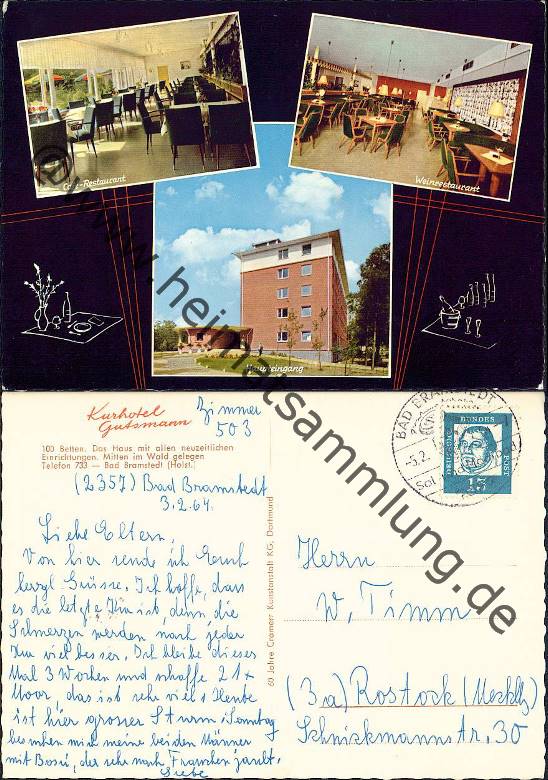 Café-Restaurant
Weinrestaurant
Haupteingang
© www.heimatsammlung.de
Kurhotel
Gutsmann
Zimmer
503
100 Betten. Das Haus mit allen neuzeitlichen
Einrichtungen. Mitten im Wald gelegen
Telefon 733 — Bad Bramstedt (Holst.)
(2357) Bad Bramstedt
3.2.64.
Liebe Eltern,
Von hier sende ich Euch
herzl. Grüsse. Ich hoffe, dass
es die letzte Kur ist, denn, die
Schmerzen werden nach jeder
Kur viel besser. Ich bleibe dieses
Mal 3 Wochen und schaffe 21 x
Moor, das ist sehr viel. Heute
ist hier grosser Sturm. Sonntag
besuchen mich meine beiden Männer
mit Bossi, der sehr nach Frauchen jault.
Liebe
60 Jahre Cramers Kunstanstalt KG, Dortmund
BAD BRAMSTEDT
-5.2.
Sol
DEUTSCHE BUNDESPOST
15
Herrn
W. Timm
(3a) Rostock (Mecklbg)
Schnickmannstr. 30